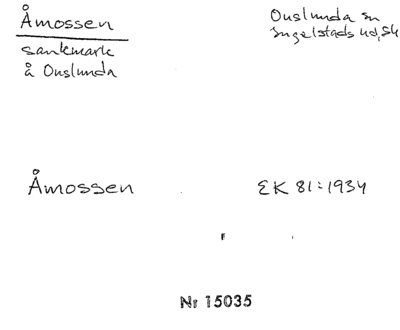 Åmossen
sankmark
å Onslunda
Onslunda sn
Ingelstads hd, Sk
Åmossen
EK 81:1934
Nr 15035